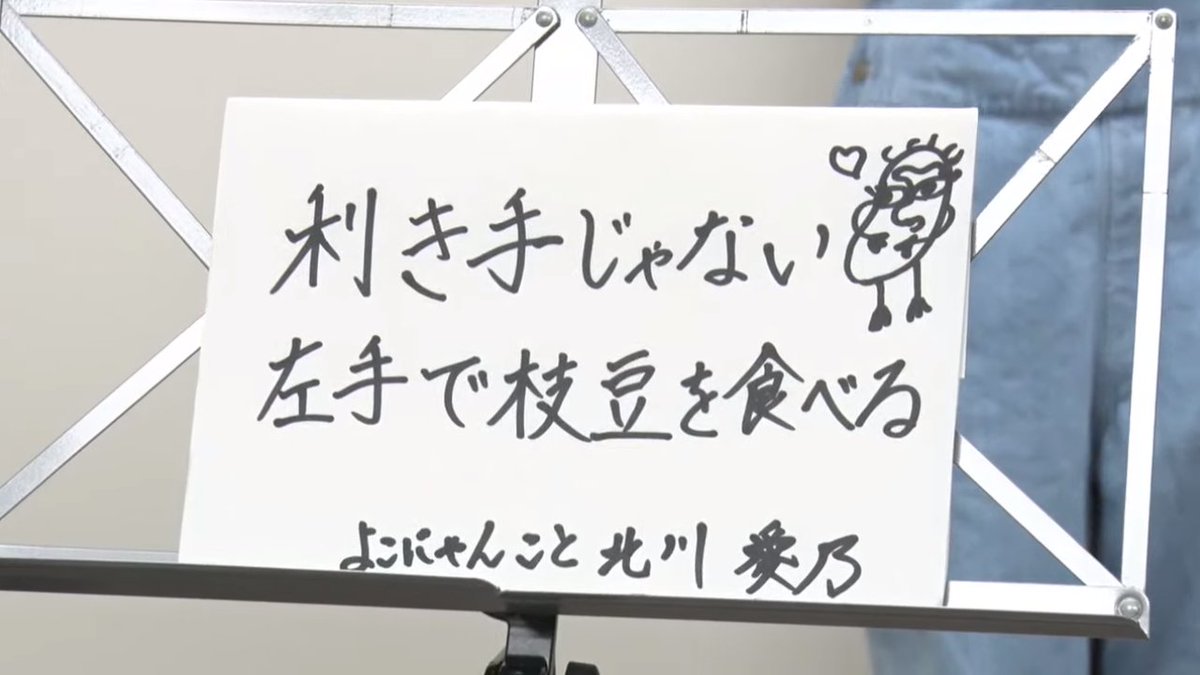 利き手じゃない
左手で枝豆を食べる
よこにゃんこと北川愛乃